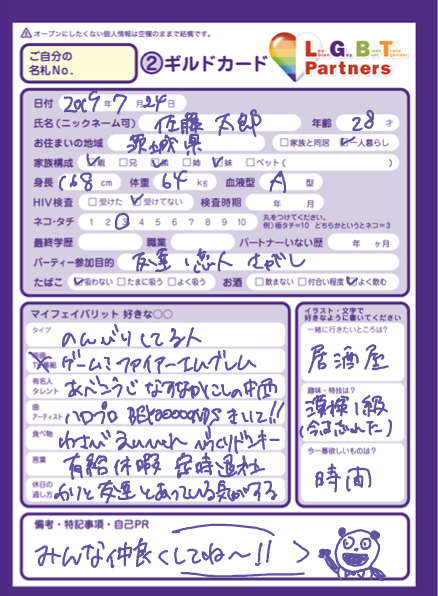 ⚠ オープンにしたくない個人情報は空欄のままで結構です。
ご自分の
名札No.
②ギルドカード
LGBT
Partners
日付 2009年7月24日
氏名(ニックネーム可) 佐藤 太郎 年齢 28才
お住まいの地域 茨城県 □家族と同居 ☑一人暮らし
家族構成 ☑親 □兄 ☑弟 □姉 ☑妹 □ペット( )
身長 168cm 体重 64kg 血液型 A型
HIV検査 □受けた ☑受けてない 検査時期 年 月
ネコ・タチ 1 2 3 4 5 6 7 8 9 10 丸をつけてください。
例)極タチ=10 どちらかというとネコ=3
最終学歴 職業 パートナーいない歴 年 ヶ月
パーティー参加目的 友達 恋人 さがし
たばこ ☑吸わない □たまに吸う □よく吸う お酒 □飲まない □付合い程度 ☑よく飲む
マイフェイバリット 好きな○○
タイプ のんびりしてる人
ゲーム:ファイアーエムブレム
有名人
タレント
曲
アーティスト ハロプロ
食べ物 わさび びっくりドンキー
言葉 有給休暇 定時退社
休日の
過し方 わりと友達とあっている気がする
イラスト・文字で
好きなように書いてください
一緒に行きたいところは?
居酒屋
趣味・特技は?
漢検1級
(今は忘れた)
今一番欲しいものは?
時間
備考・特記事項・自己PR
みんな仲良くしてね〜!!